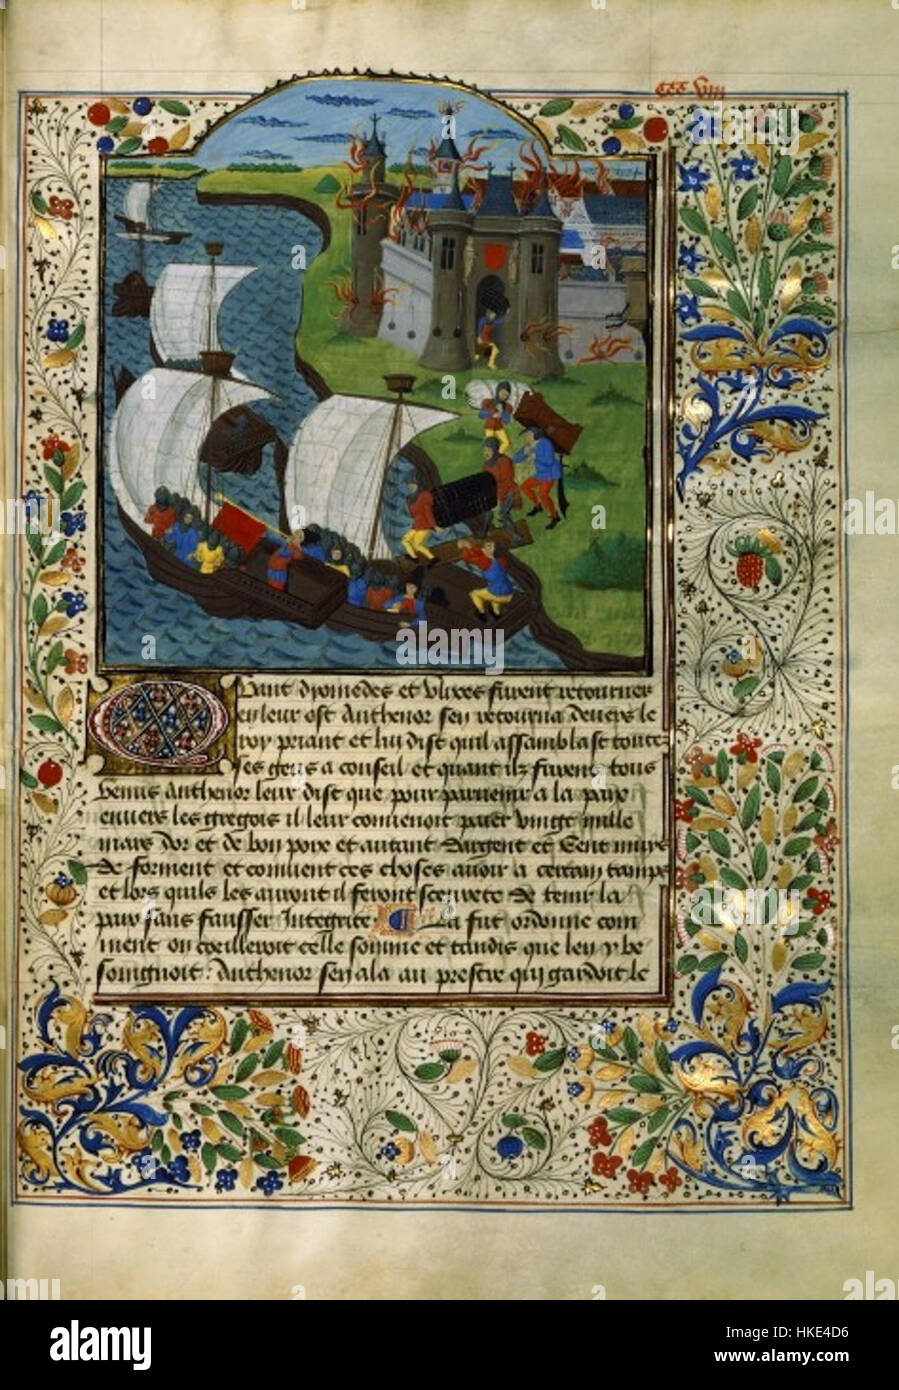 CCC VIII
Quant dyomedes et Ulixes furent retournez
en leur ost Anthenor sen retourna devers le
roy priant et lui dist quil assemblast toutes
ses gens a conseil et quant ilz furent tous
Venus Anthenor leur dist que pour parvenir a la paix
envers les gregois il leur convenoit paier vingt mille
mars dor et de bon poix et autant dargent et Cent muys
de forment et convient ces choses avoir a certain temps
et lors quils les auront il feront seurete de tenir la
paix sans fausser Integrite La fut ordonne com
ment on coeilleroit celle somme et tandis que len y be
songnoit: Anthenor sen ala au prestre qui gardoit le
alamy
Image ID: HKE4D6
www.alamy.com